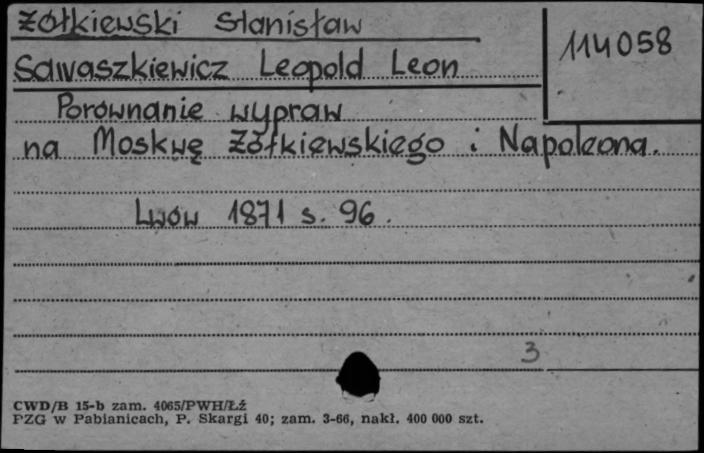 Żółkiewski Stanisław
114058
Sawaszkiewicz Leopold Leon
Porównanie wypraw
na Moskwę Żółkiewskiego i Napoleona.
Lwów 1871 s. 96.
3
CWD/B 15-b zam. 4065/PWH/Łź
PZG w Pabianicach, P. Skargi 40; zam. 3-66, nakł. 400 000 szt.